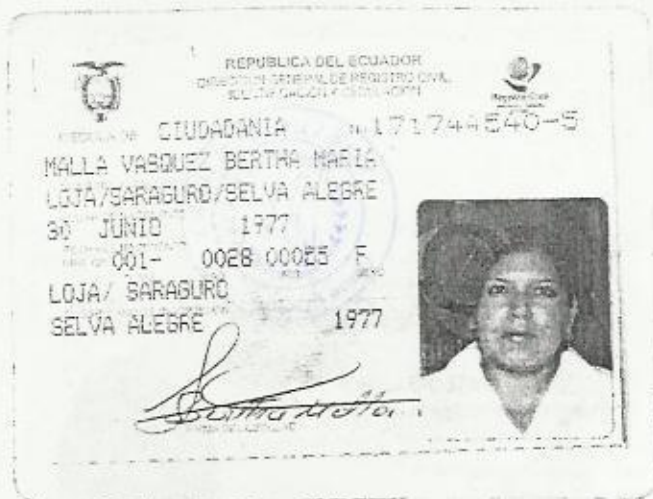 REPUBLICA DEL ECUADOR
DIRECCION GENERAL DE REGISTRO CIVIL
IDENTIFICACION Y CEDULACION
CIUDADANIA
MALLA VASQUEZ BERTHA MARIA
LOJA/SARAGURO/SELVA ALEGRE
30 JUNIO 1977
001- F
LOJA/ SARAGURO
SELVA ALEGRE 1977